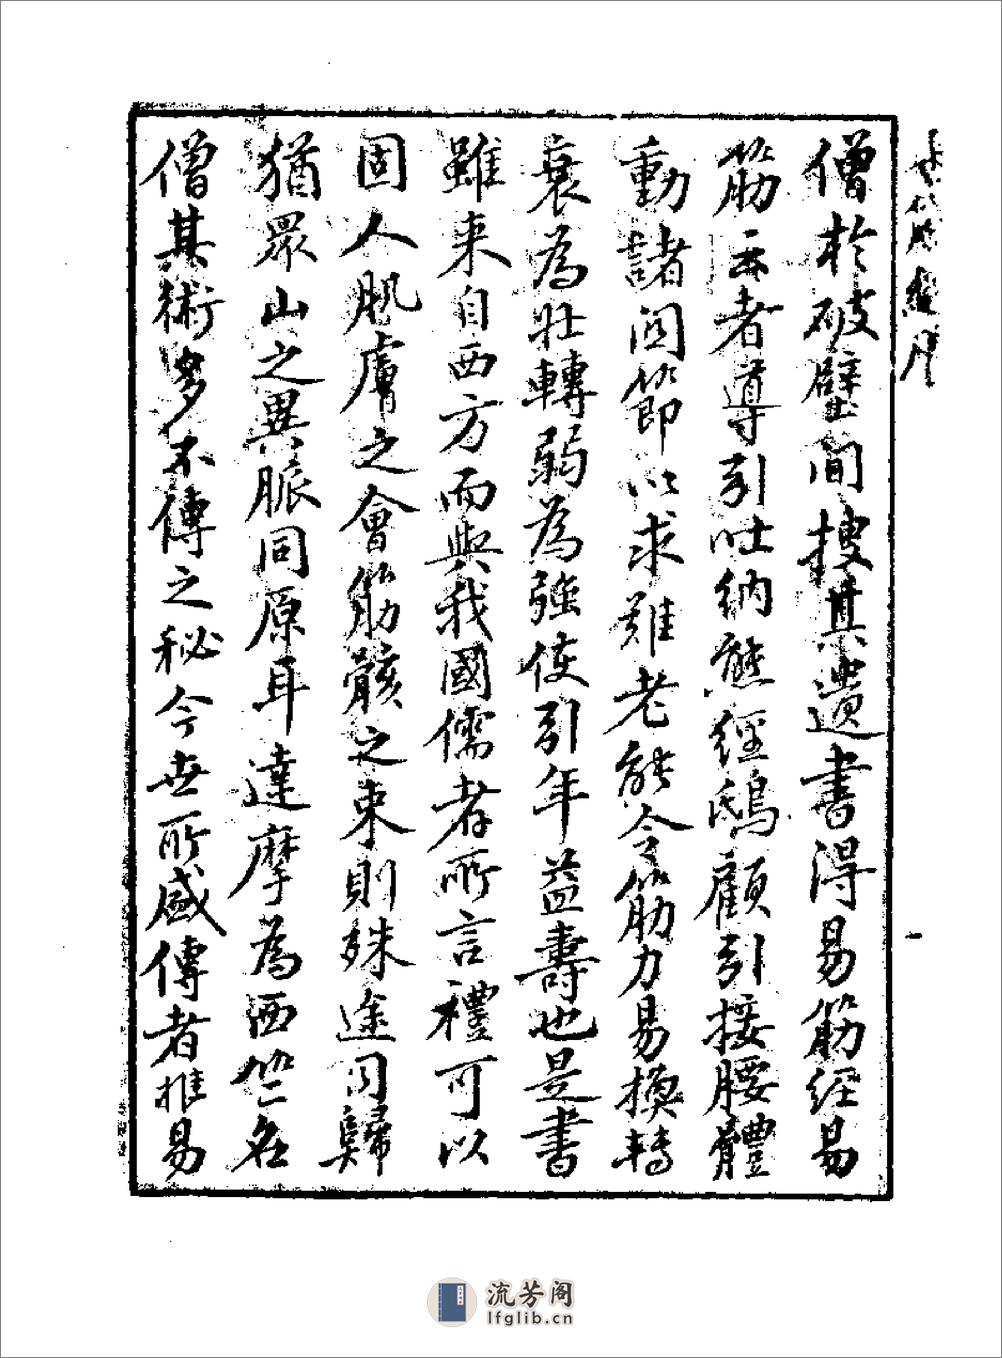 僧於破壁間搜其遺書得易筋经易
筋云者導引吐納熊經鴟顧引接腰體
動諸関節以求難老能令筋力易換轉
衰為壯轉弱為強使引年益壽也是書
雖来自西方而與我國儒者所言禮可以
固人肌膚之會筋骸之束則殊途同歸
猶眾山之異脈同原耳達摩為西竺名
僧其術多不傳之秘今世所盛傳者推易
流芳阁
lfglib.cn